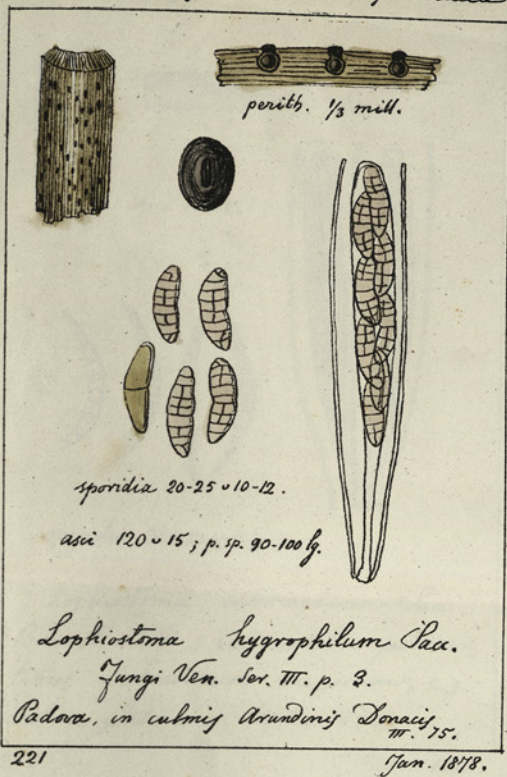 perith. 1/3 mill.
sporidia 20-25 ᴗ 10-12.
asci 120 ᴗ 15 ; p. sp. 90-100 lg.
Lophiostoma hygrophilum Sacc.
Fungi Ven. Ser. III. p. 3.
Padova, in culmis Arundinis Donacis
III. 75.
221
Jan. 1878.